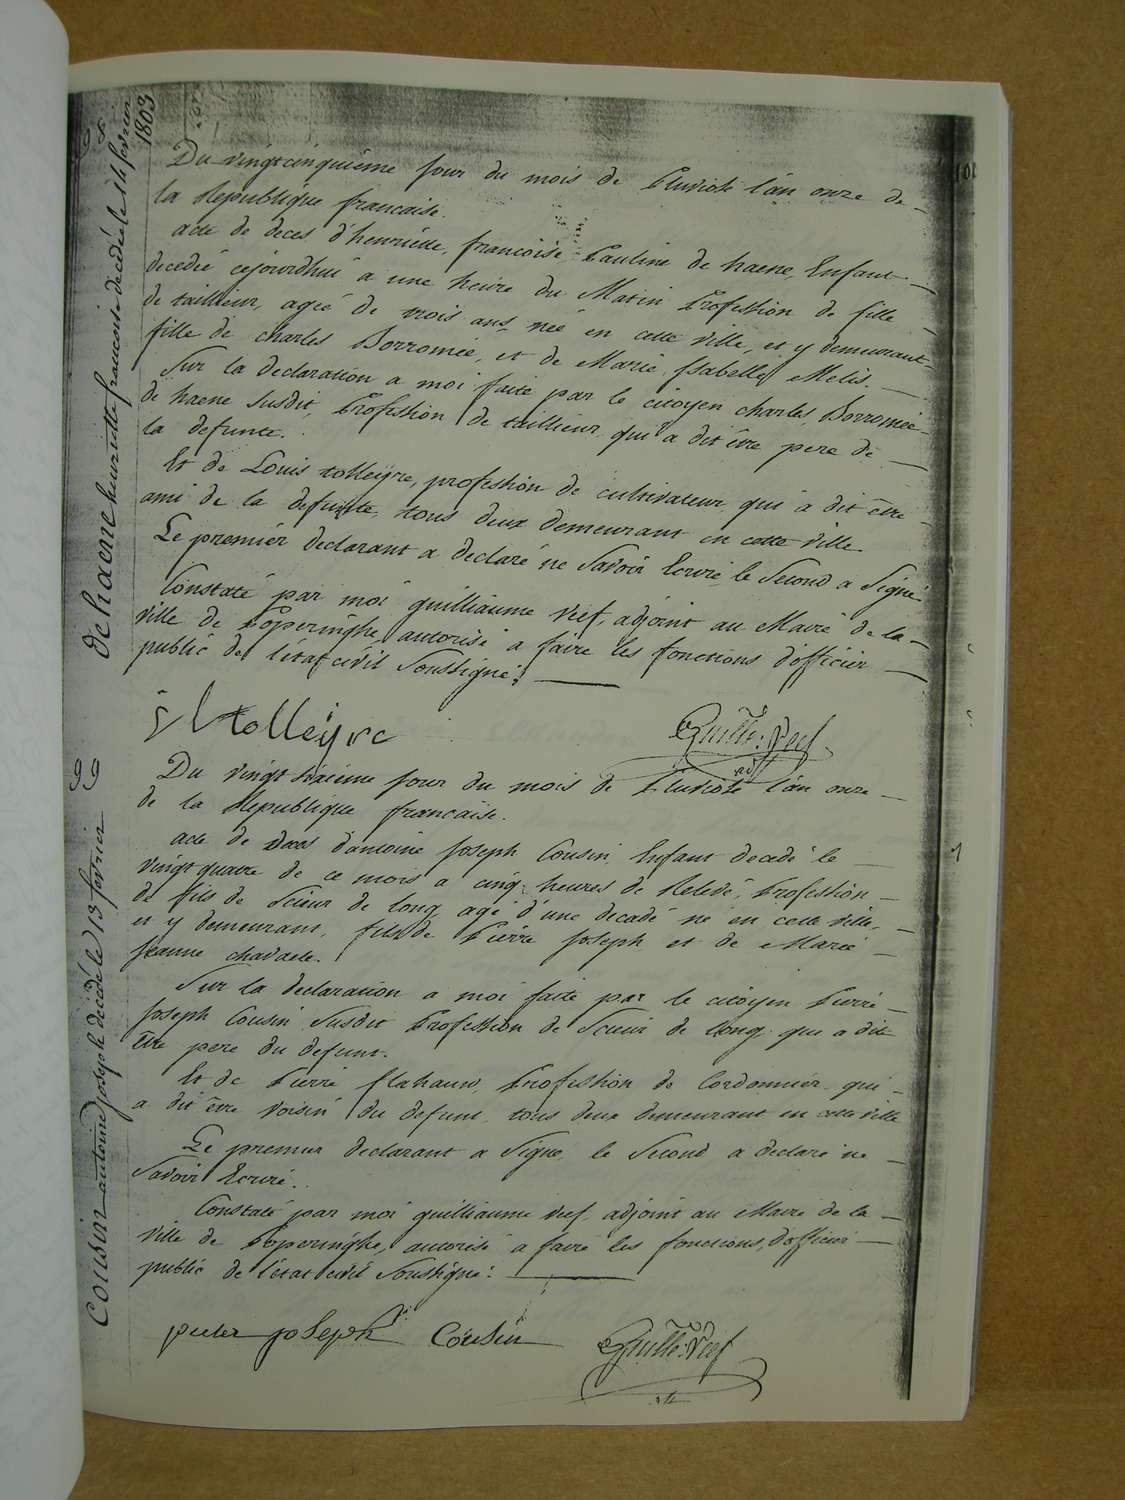 98
de haene henriette francoise decedée le 14 fevrier
1803
Du vingtcinquiéme jour du mois de Pluviose l'an onze de
la Republique francaise.
acte de deces d'henriette, francoise, Pauline de haene, Enfant
decedé cejourdhui a une heure du Matin Profession de fille
de taillieur, agée de trois ans née en cette ville, et y demeurant
fille de charles Borromée, et de Marie Isabelle Melis.
Sur la declaration a moi faite par le citoyen charles, Borromée
de haene susdit, Profession de taillieur qui a dit être pere de
la defunte.
Et de Louis tolleÿre, profession de cultivateur qui a dit être
ami de la defunte, tous deux demeurant en cette ville
Le premier declarant a declaré ne Savoir Ecrire, le Second a Signé
Constaté par moi guilliaume Veef, adjoint au Maire de la
ville de Poperinghe autorisé a faire les fonctions d'officier
public de l'état civil Soussigné.
tolleÿre
Guille: Veef
99
Cousin antoine joseph decédé le 13 fevrier
Du vingt sixieme jour du mois de Pluviose l'an onze
de la Republique francaise.
acte de deces d'antoine joseph Cousin, Enfant decedé le
vingt quatre de ce mois a cinq heures de Relevé, Profession
de fils de Scieur de long agé d'une decade né en cette ville,
et y demeurant, fils de Pierre joseph et de Marie
jeanne
Sur la declaration a moi faite par le citoyen Pierre
joseph Cousin Susdit Profession de Scieur de long qui a dit
être pere du defunt.
Et de Pierre flahauw, Profession de Cordonnier qui
a dit être voisin du defunt, tous deux demeurant en cette ville
Le premier declarant a Signé, le Second a declaré ne
Savoir Ecrire.
Constaté par moi guilliaume veef, adjoint au Maire de la
ville de Poperinghe, autorisé a faire les fonctions, d'officier
public de l'état civil Soussigné.
pieter joseph Cousin
Guille: Veef